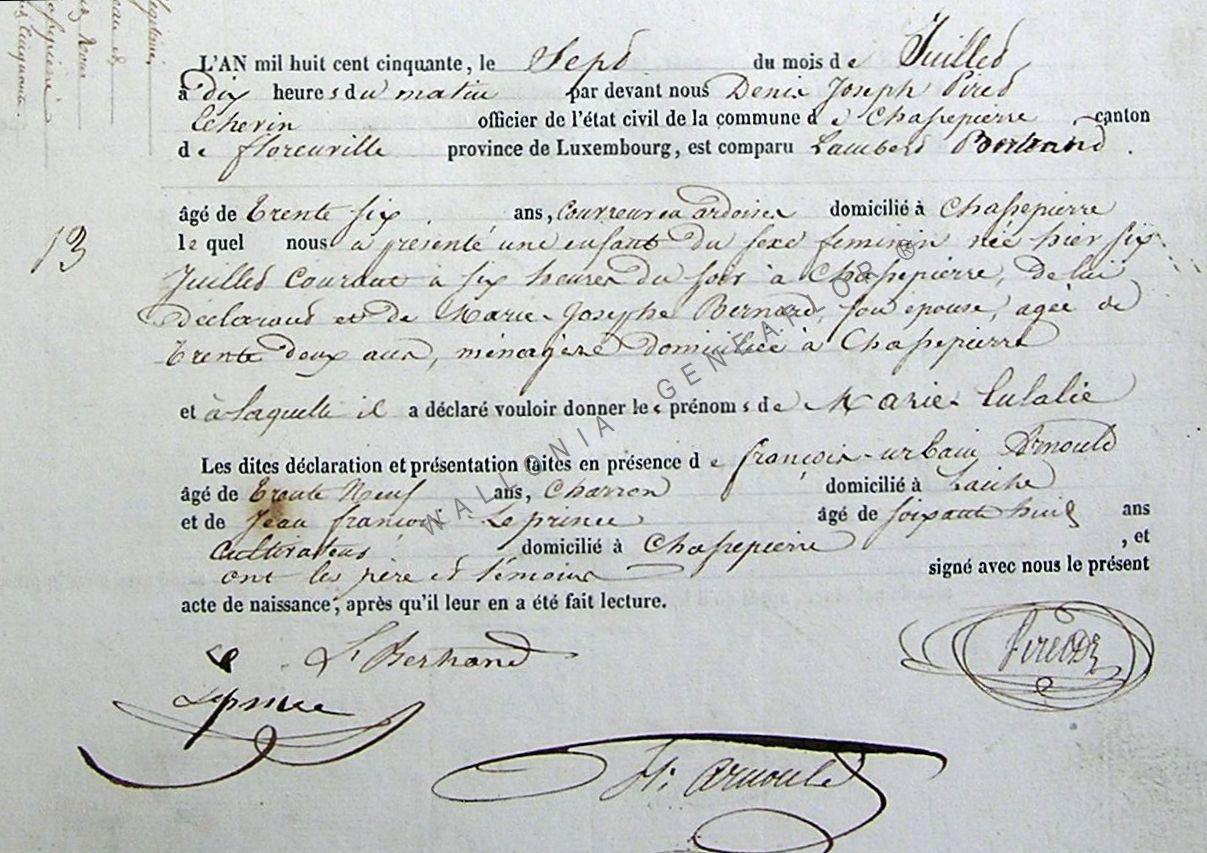 L'AN mil huit cent cinquante, le Sept du mois de Juillet
à dix heures du matin par devant nous Denis Joseph Piret
Echevin officier de l'état civil de la commune de Chassepierre canton
de florenville province de Luxembourg, est comparu Lambert Bertrand.
âgé de trente six ans, Couvreur en ardoises domicilié à Chassepierre
13
lequel nous a présenté une enfant du sexe feminin née hier six
Juillet courant à six heures du soir à Chassepierre, de lui
déclarant et de Marie-Josephe Bernard, son epouse, agée de
trente deux ans, ménagère domiciliée à Chassepierre
et à laquelle il a déclaré vouloir donner les prénoms de Marie-Eulalie
Les dites déclaration et présentation faites en présence de françois-urbain Arnould
âgé de trente Neuf ans, Charron domicilié à Laiche
et de Jean françois Leprince âgé de soixante huit ans
cultivateur domicilié à Chassepierre, et
ont les père et témoins signé avec nous le présent
acte de naissance, après qu'il leur en a été fait lecture.
L Bertrand
Piret DJ
Leprince
f: arnould
WALLONIA GENEARLOR ®